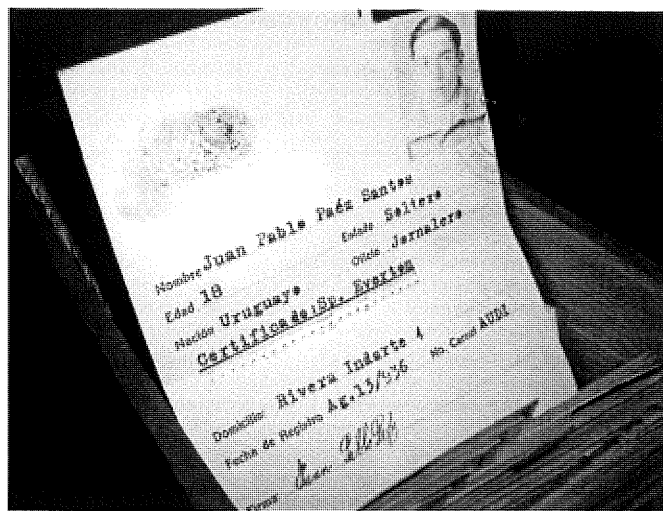 Nombre Juan Pablo Paéz Santos
Edad 18 Estado Soltero
Nación Uruguayo Oficio Jornalero
Certificado: Sp. Everien
Domicilio: Rivera Indarte 4
Fecha de Registro Ag.13/936 No. Carnet AUDI
Firma Juan Pablo